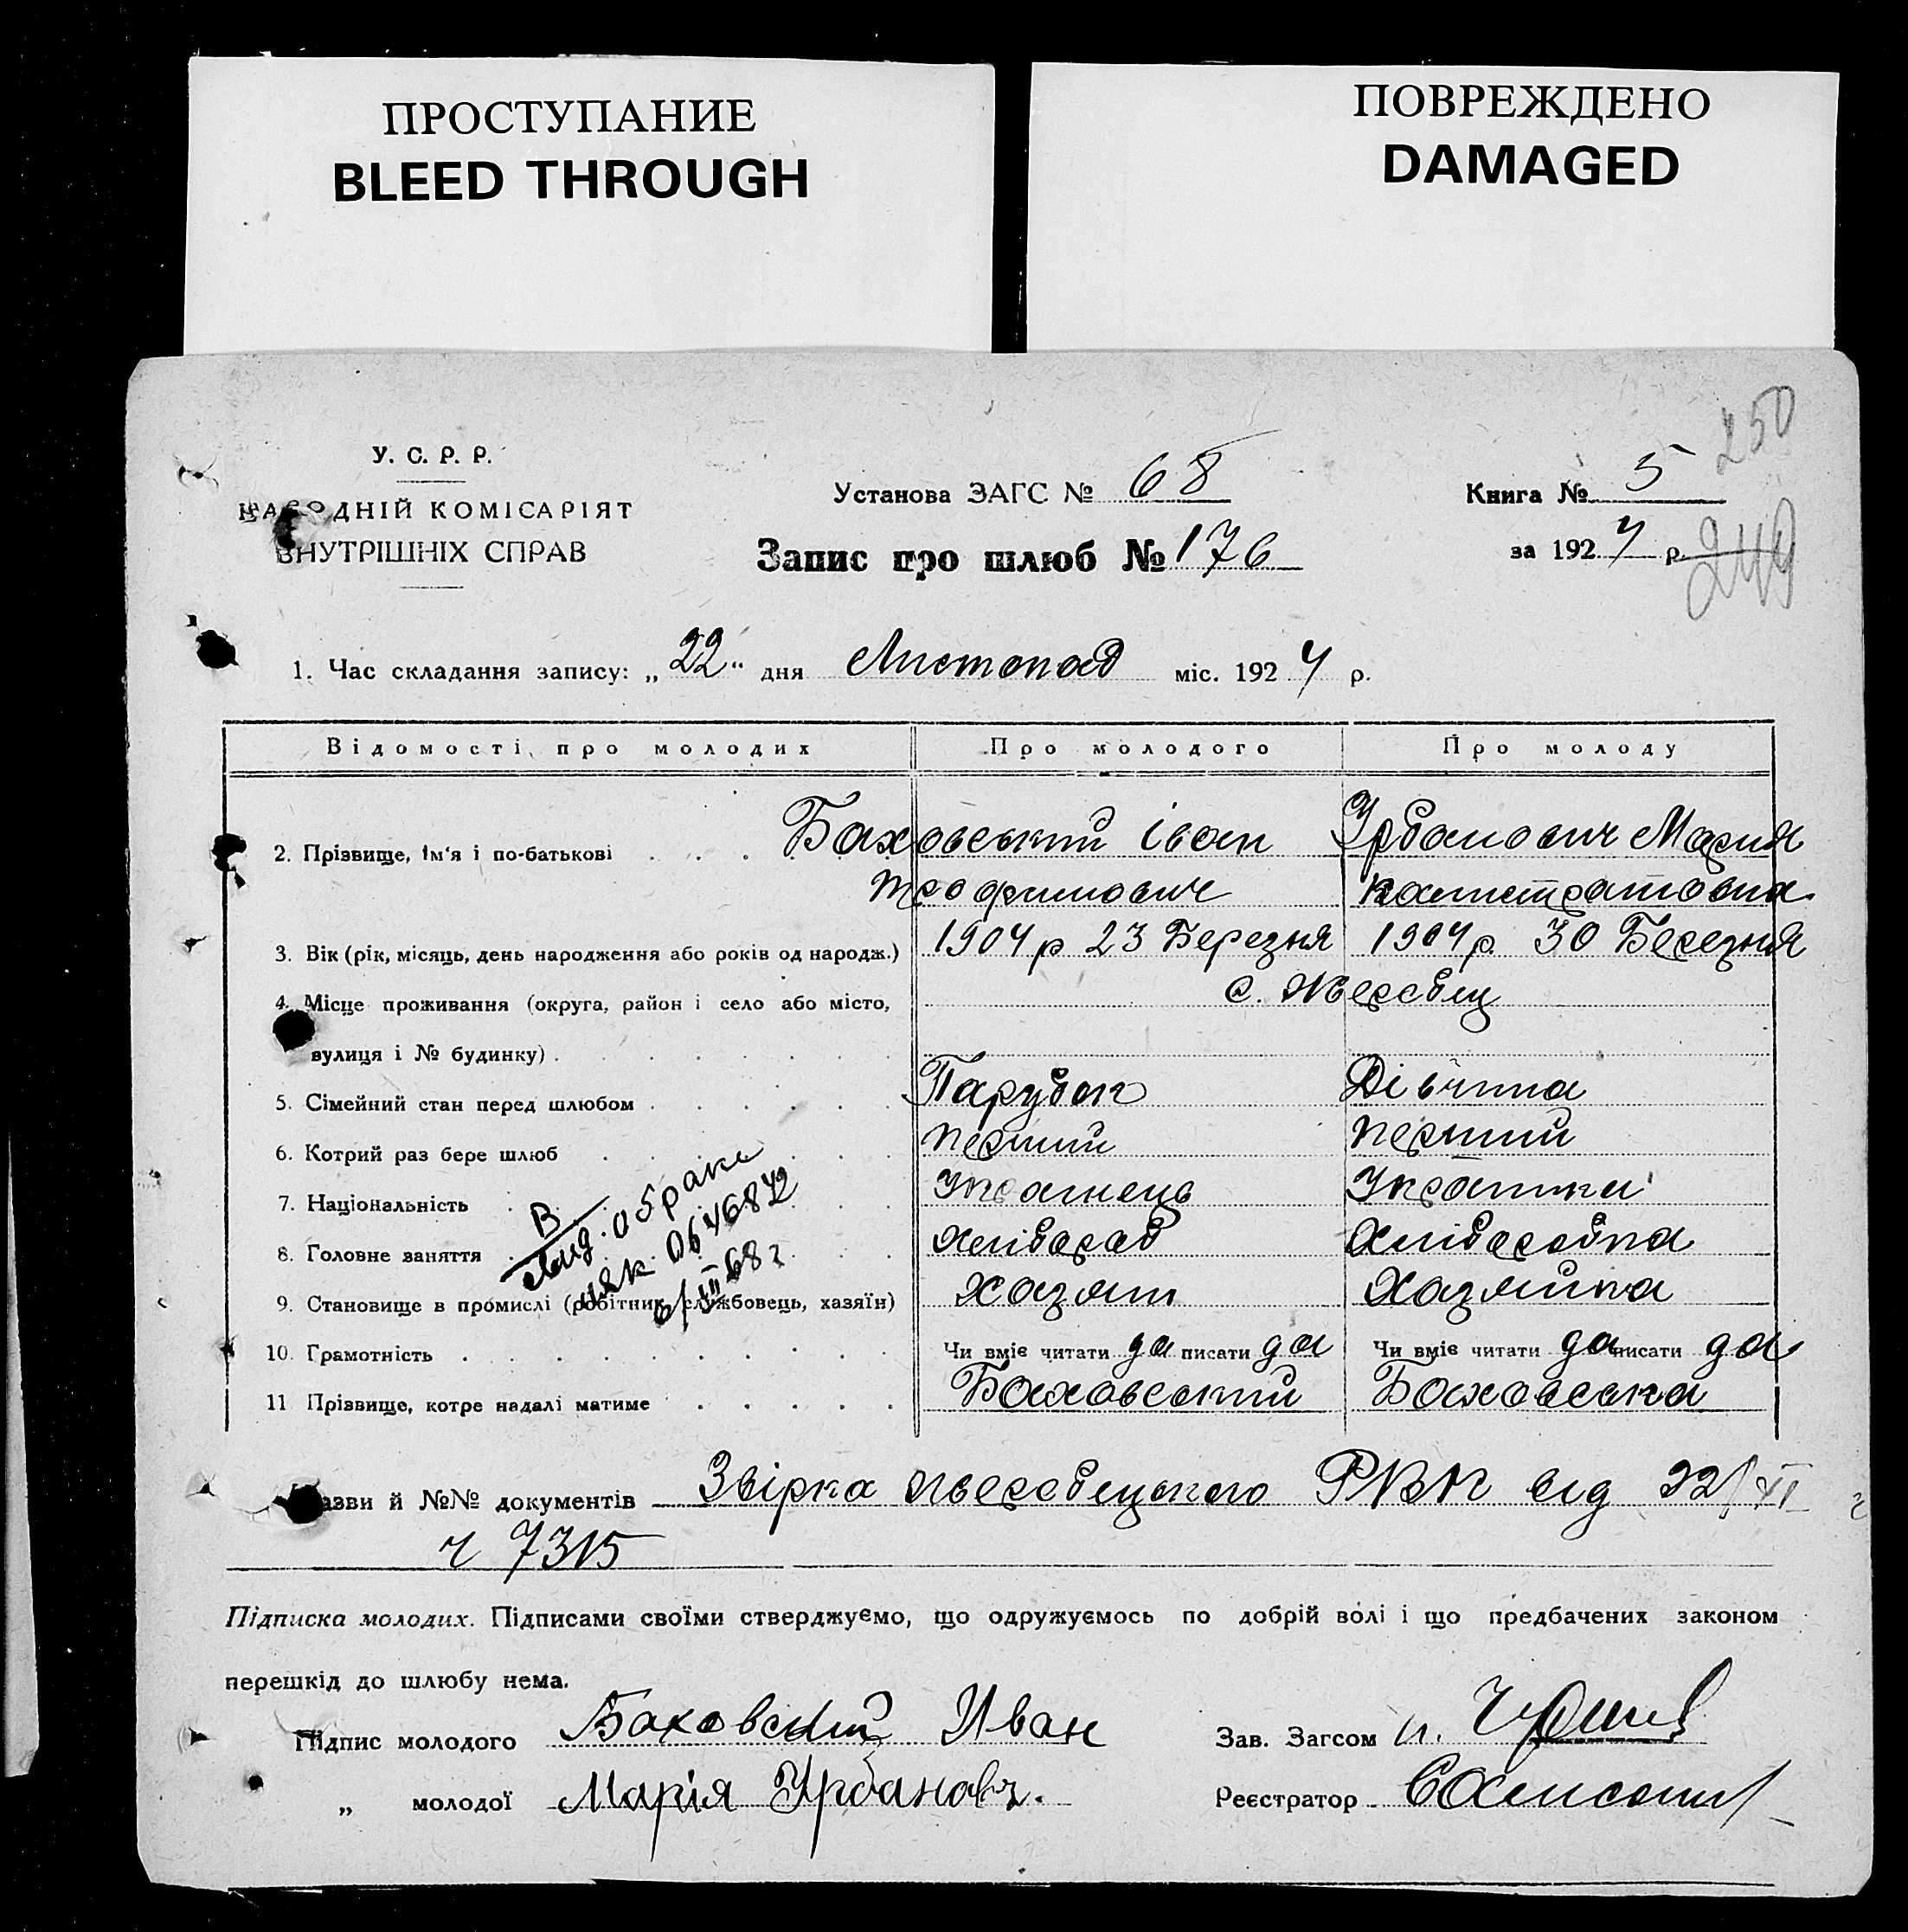 ПРОСТУПАНИЕ
BLEED THROUGH
ПОВРЕЖДЕНО
DAMAGED
250
У. С. Р. Р.
НАРОДНІЙ КОМІСАРІЯТ
ВНУТРІШНІХ СПРАВ
Установа ЗАГС № 68
Книга № 5
Запис про шлюб № 176
за 1924 р.
249
1. Час складання запису: „22" дня Листопад міс. 1924 р.
Відомості про молодих Про молодого Про молоду
2. Прізвище, ім'я і по-батькові . . . Баховський Іван Урбанович Мария
Теофилович Калистратовна
3. Вік (рік, місяць, день народження або років од народж.) 1904 р 23 Березня 1904 р. 30 Березня
4. Місце проживання (округа, район і село або місто, с. Жеребец
вулиця і № будинку) . . . . . . .
5. Сімейний стан перед шлюбом . . . . . . Парубок Дівчина
6. Котрий раз бере шлюб . . . . . . Перший Перший
7. Національність . . . . Украинець Украинка
8. Головне заняття . . . . Хлібороб Хліборобка
9. Становище в промислі (робітник, службовець, хазяїн) Хазяин Хазяйка
В
свид. о браке
ІІІ 68 г
10. Грамотність . . . . . . . . . Чи вміє читати да писати да Чи вміє читати да писати да
11 Прізвище, котре надалі матиме . . . . . Баховський Баховська
азви й №№ документів Звірка Жеребецького РВК від 22/XI
ч 7315
Підписка молодих. Підписами своїми стверджуємо, що одружуємось по добрій волі і що предбачених законом
перешкід до шлюбу нема.
Підпис молодого Баховский Иван Зав. Загсом
„ молодої Марія Урбанович. Реєстратор